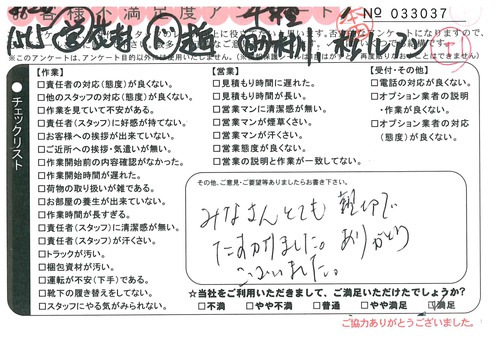 お客様不満足度アンケート
№ 033037
チェックリスト
【作業】
□責任者の対応(態度)が良くない。
□他のスタッフの対応(態度)が良くない。
□作業を見ていて不安がある。
□責任者(スタッフ)に好感が持てない。
□お客様への挨拶が出来ていない。
□ご近所への挨拶・気遣いが無い。
□作業開始前の内容確認がなかった。
□作業開始時間が遅れた。
□荷物の取り扱いが雑である。
□お部屋の養生が出来ていない。
□作業時間が長すぎる。
□責任者(スタッフ)に清潔感が無い。
□責任者(スタッフ)が汗くさい。
□トラックが汚い。
□梱包資材が汚い。
□運転が不安(下手)である。
□靴下の履き替えをしてない。
□スタッフにやる気がみられない。
【営業】
□見積もり時間に遅れた。
□見積もり時間が長い。
□営業マンに清潔感が無い。
□営業マンが煙草くさい。
□営業マンが汗くさい。
□営業態度が良くない。
□営業の説明と作業が一致してない。
【受付・その他】
□電話の対応が良くない。
□オプション業者の説明
・作業が良くない。
□オプション業者の対応
(態度)が良くない。
その他、ご意見・ご要望等ありましたらお書き下さい。
みなさんとても親切で
たすかりました。ありがとう
ございました。
☆当社をご利用いただきまして、ご満足いただけたでしょうか?
□不満 □やや不満 □普通 □やや満足 □満足
ご協力ありがとうございました。